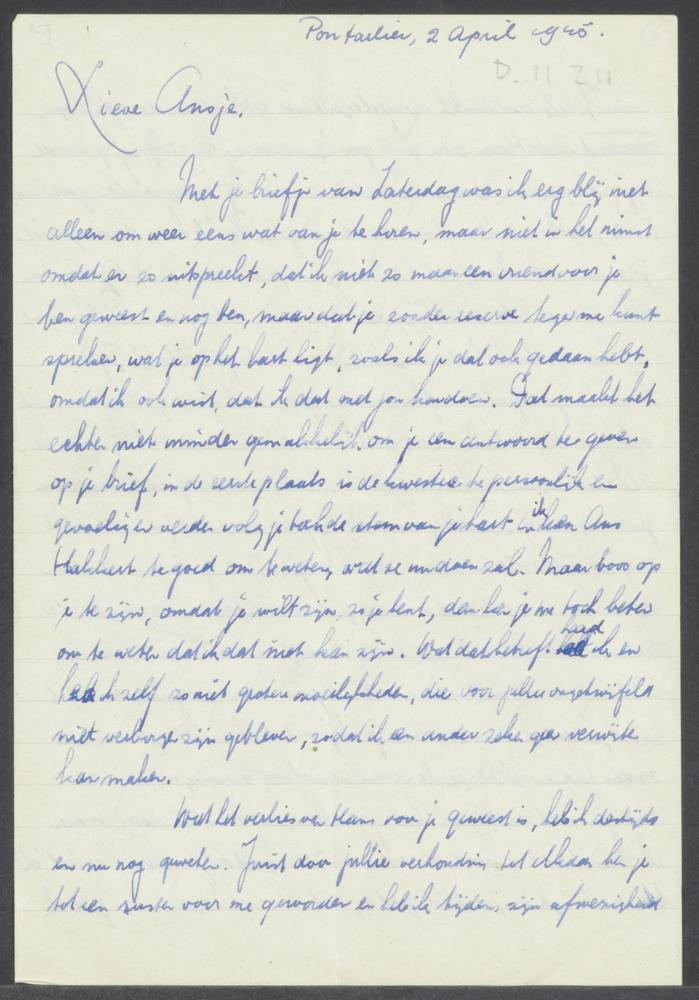 Pontarlier, 2 April 1945.
D. II 211
Lieve Ansje.
Met je briefje van Zaterdag was ik erg blij, niet
alleen om weer eens wat van je te horen, maar niet in het minst
omdat er zo uitspreekt, dat ik niet zo maar een vriend voor je
ben geweest en nog ben, maar dat je zonder reserve tegen me kunt
spreken, wat je op het hart ligt, zoals ik je dat ook gedaan hebt,
omdat ik ook wist, dat ik dat met jou kon doen. Dat maakt het
echter niet minder gemakkelijk om je een antwoord te geven
op je brief, in de eerste plaats is de kwestie te persoonlijk en
gevoelig en verder volg je toch de stem van je hart ik ken Ans
te goed om te weten, wat ze nu doen zal. Maar boos op
je te zijn, omdat je wilt zijn, zo je bent, dan ken je me toch beter
om te weten dat ik dat niet kan zijn. Wat dat betreft had ik en
heb ik zelf zo niet grotere moeilijkheden, die voor jullie ongetwijfeld
niet verborgen zijn gebleven, zodat ik een ander zeker geen verwijt
kan maken.
Wat het verlies van Hans voor je geweest is, heb ik destijds
en nu nog geweten. Juist door jullie verhouding tot elkaar ben je
tot een zuster voor me geworden en heb ik tijdens zijn afwezigheid